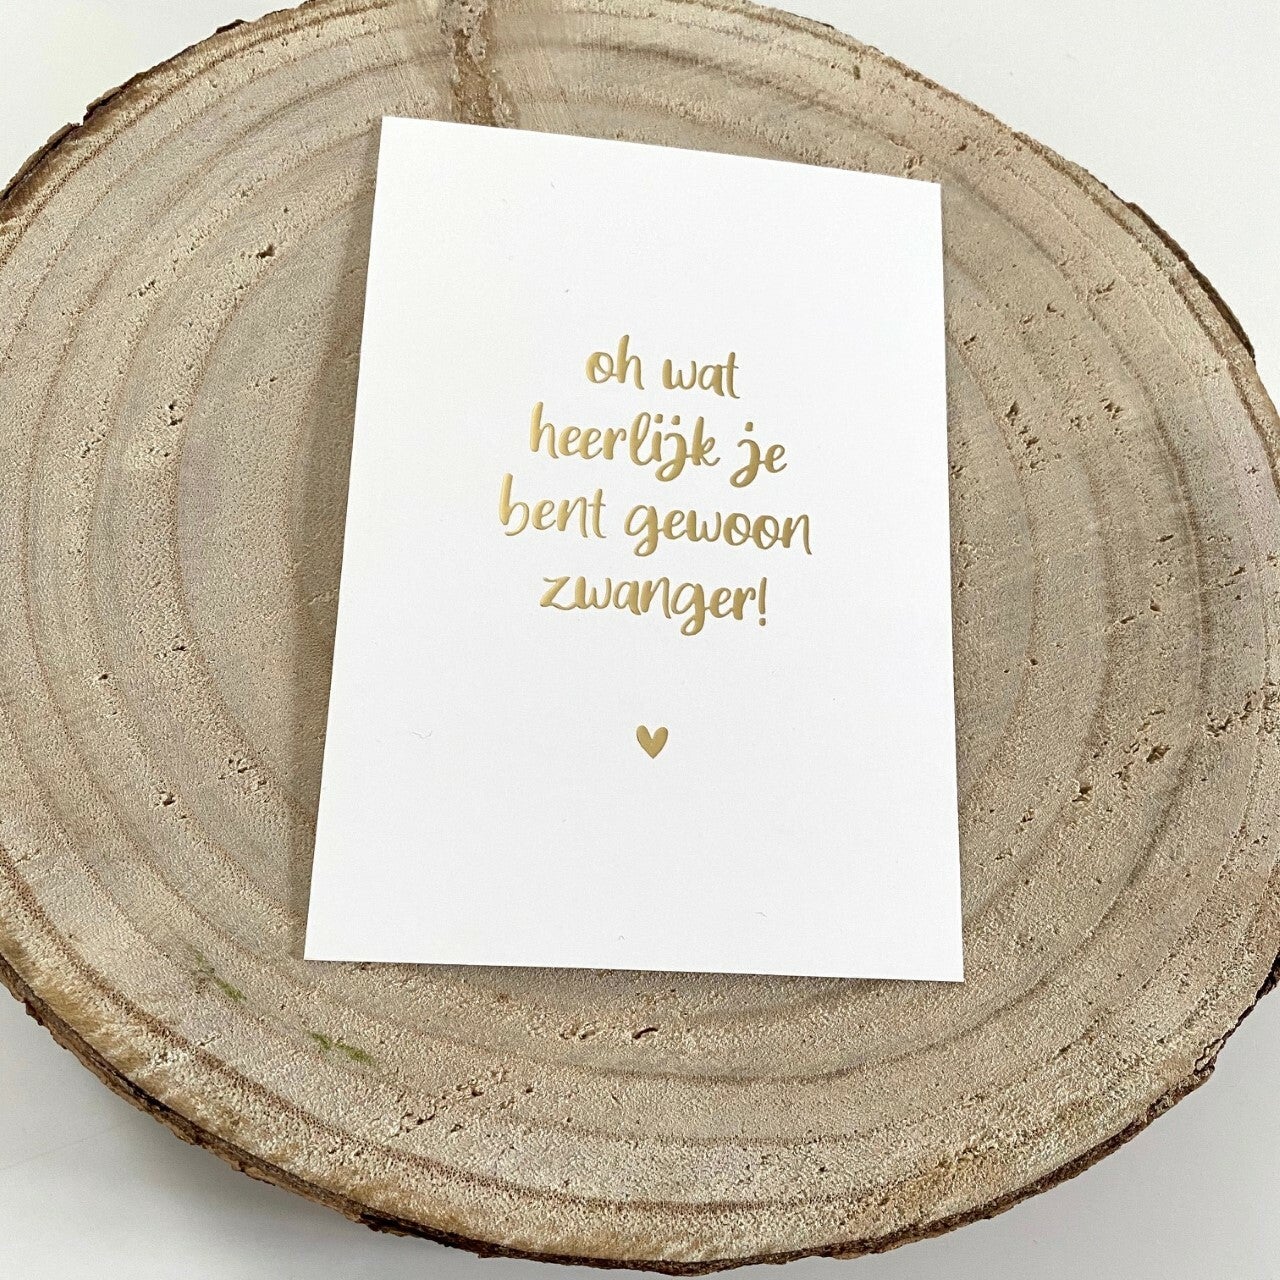 oh wat
heerlijk je
bent gewoon
zwanger!